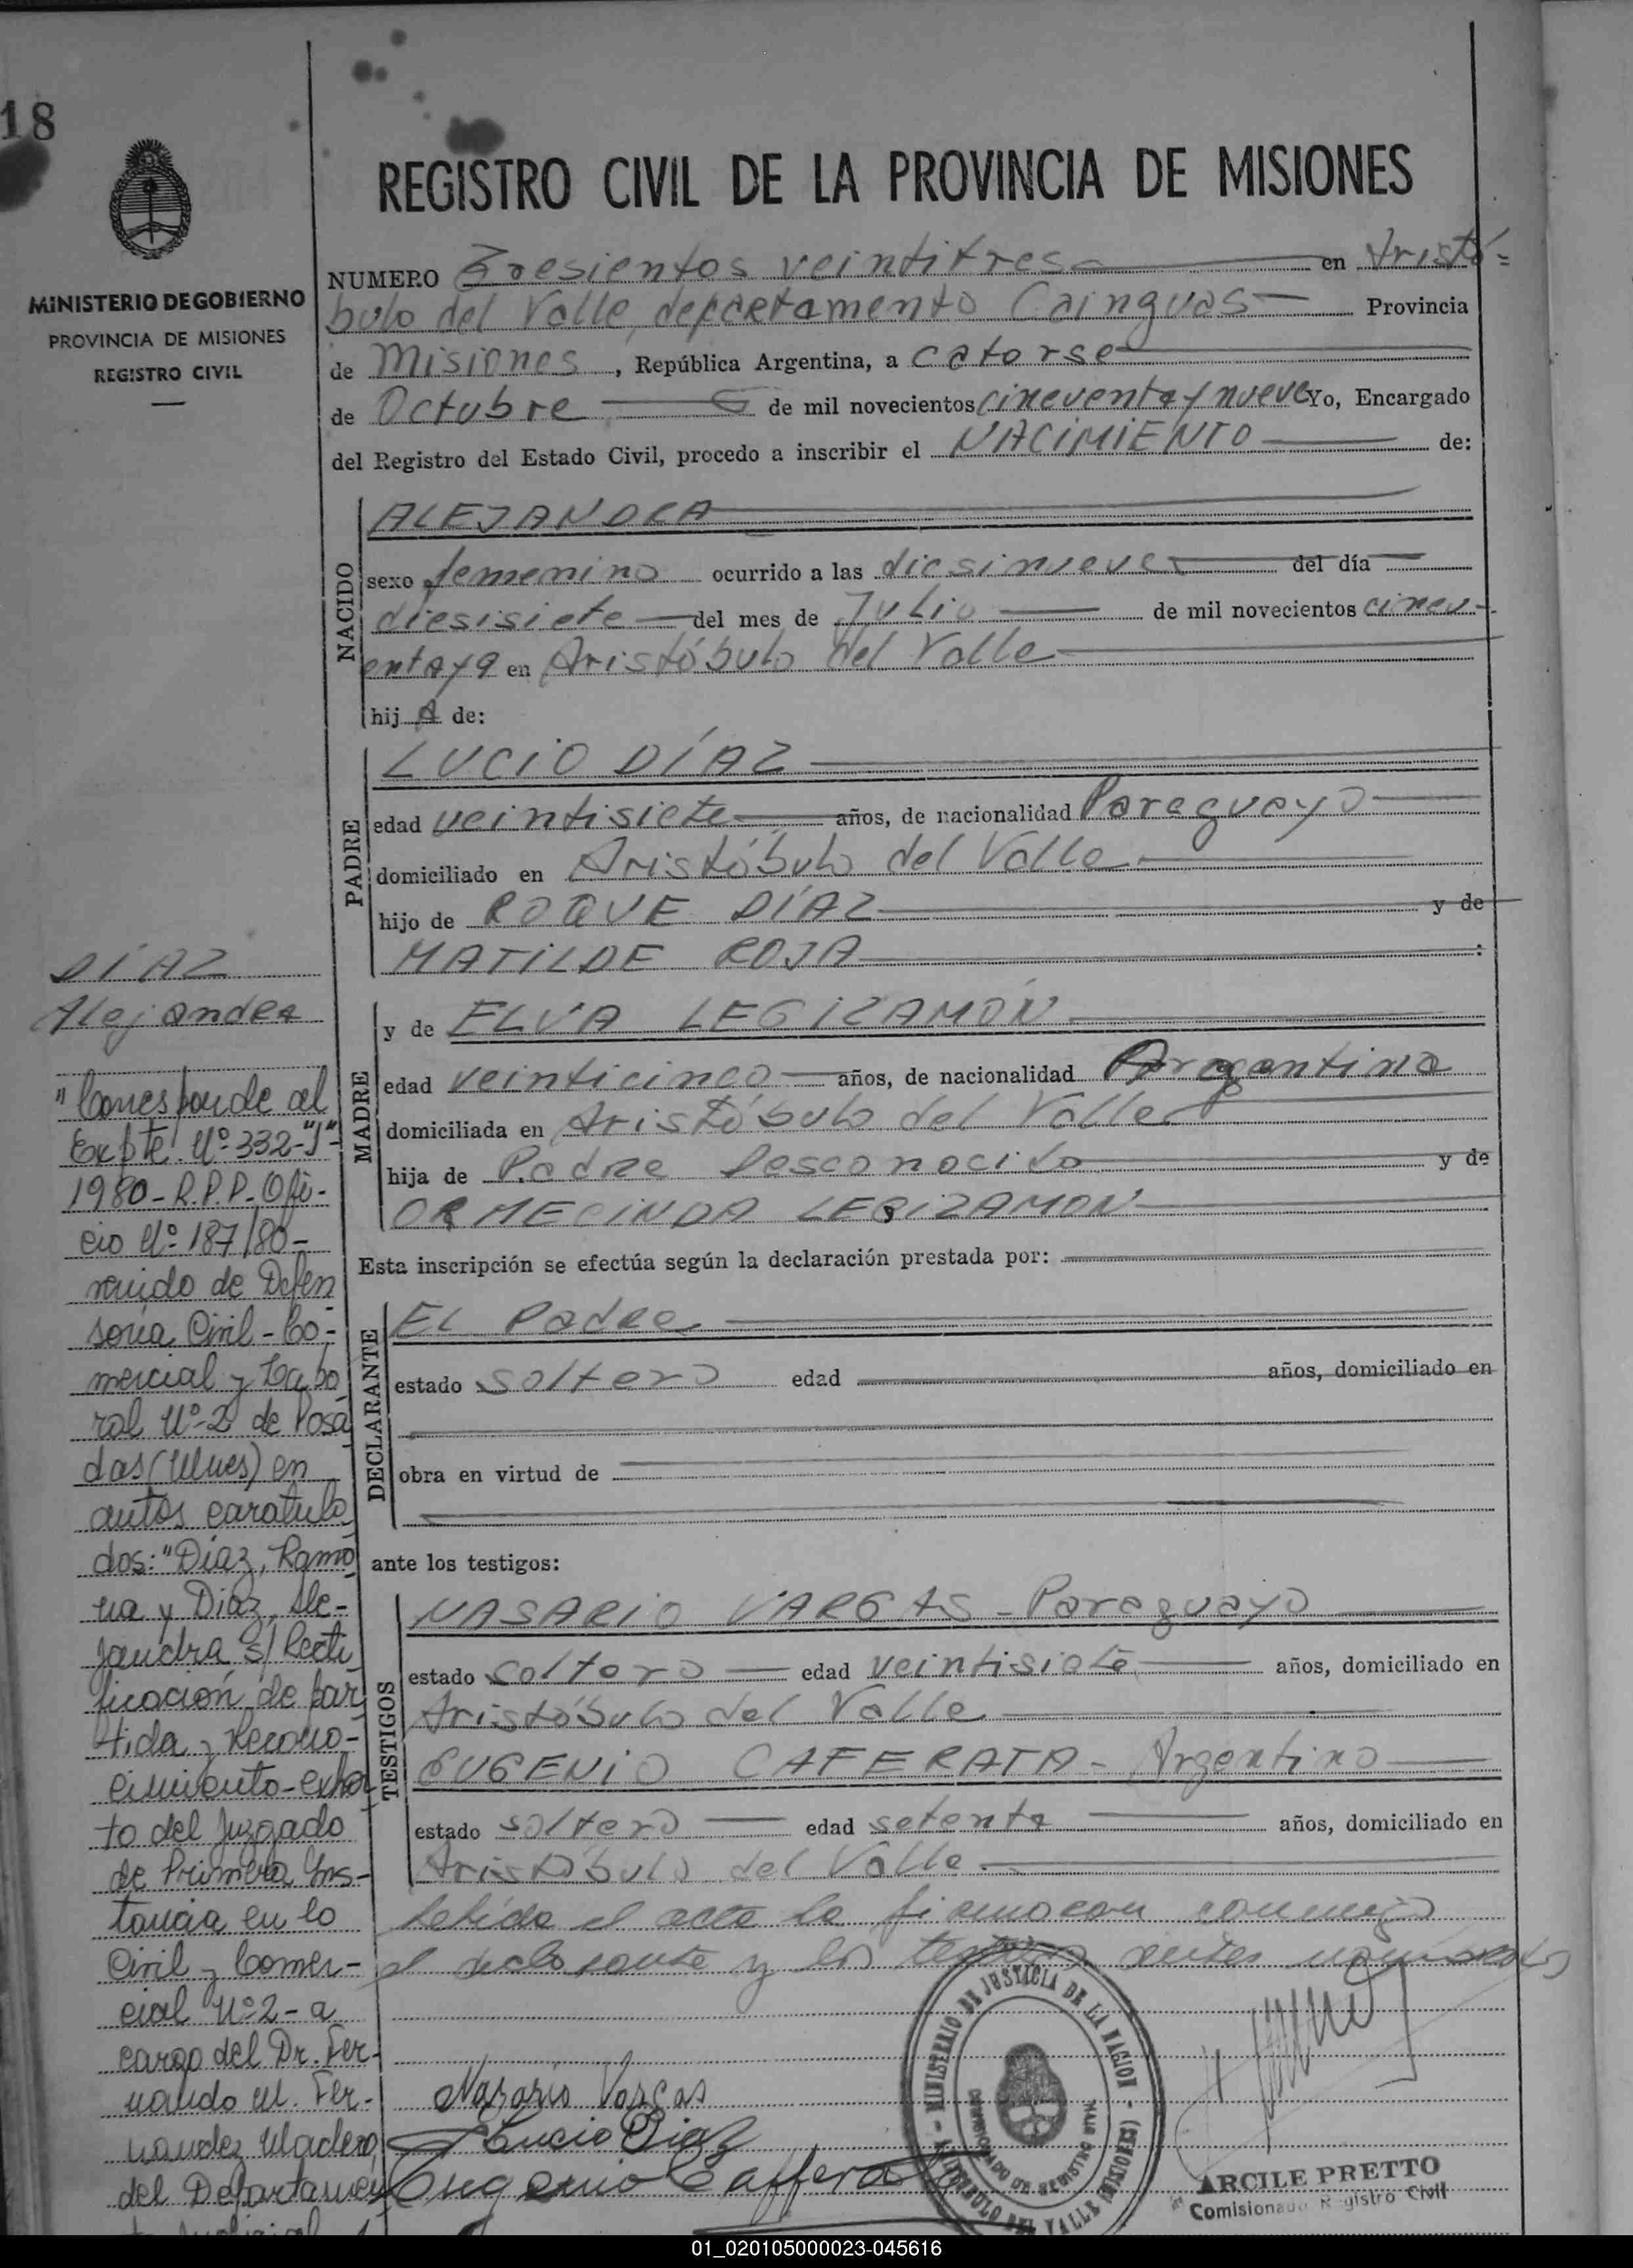 18
REGISTRO CIVIL DE LA PROVINCIA DE MISIONES
MINISTERIO DE GOBIERNO
PROVINCIA DE MISIONES
REGISTRO CIVIL
NUMERO Tresientos veintitres en Aristó=
bulo del Valle, departamento Cainguas Provincia
de Misiones, República Argentina, a catorse
de Octubre de mil novecientos cincuenta y nueve Yo, Encargado
del Registro del Estado Civil, procedo a inscribir el NACIMIENTO de:
NACIDO
ALEJANDRA
sexo femenino ocurrido a las diesinueve del día
diesisiete del mes de Julio de mil novecientos cincu-
enta y 9 en Aristóbulo del Valle
hij A de:
PADRE
LUCIO DÍAZ
edad veintisiete años, de nacionalidad Paraguayo
domiciliado en Aristóbulo del Valle
hijo de ROQUE DÍAZ y de
MATILDE ROJA
MADRE
y de ELVA LEGIZAMÓN
edad veinticinco años, de nacionalidad Argentina
domiciliada en Aristóbulo del Valle
hija de Padre Desconocido y de
ORMECINDA LEGIZAMON
Esta inscripción se efectúa según la declaración prestada por:
DECLARANTE
EL Padre
estado soltero edad años, domiciliado en
obra en virtud de
ante los testigos:
TESTIGOS
NASARIO VARGAS - Paraguayo
estado soltero edad veintisiete años, domiciliado en
Aristóbulo del Valle
EUGENIO CAFERATA - Argentino
estado soltero edad setenta años, domiciliado en
Aristóbulo del Valle
Leída el acta la firmaron conmigo
el declarante y los testigos antes nombrados
Nazario Vargas
Lucio Diaz
Eugenio Cafferata
MINISTERIO DE JUSTICIA DE LA NACION
ARISTOBULO DEL VALLE (MISIONES)
ARCILE PRETTO
Comisionado Registro Civil
DÍAZ
Alejandra
"Corresponde al
Expte. Nº 332-"J"-
1980-R.P.P.-Ofi-
cio Nº 187/80-
venido de Defen
soría Civil-Co-
mercial y Labo
ral Nº 2 de Posa
das (Mnes) en
autos caratula
dos: "Díaz, Ramo
na y Díaz, Ale-
jandra s/ Recti
ficación de par
tida y Recono-
cimiento-exhor
to del Juzgado
de Primera Ins-
tancia en lo
Civil y Comer-
cial Nº 2-a
cargo del Dr. Fer-
nando M. Fer-
nandez Madero,
del Departamen
01_020105000023-045616